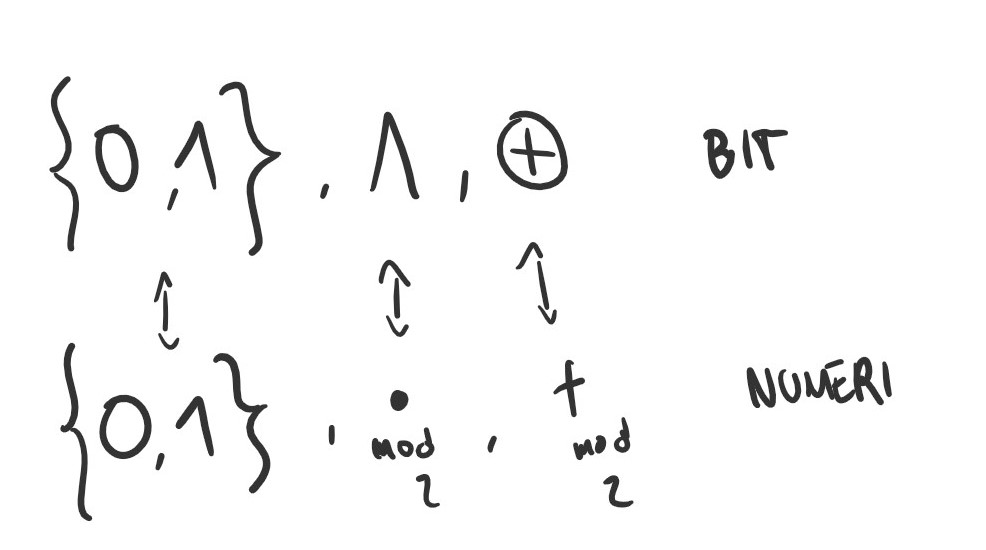 {0,1}, ∧, ⊕ BIT
↕ ↕ ↕
{0,1}, • mod 2, + mod 2 NUMERI